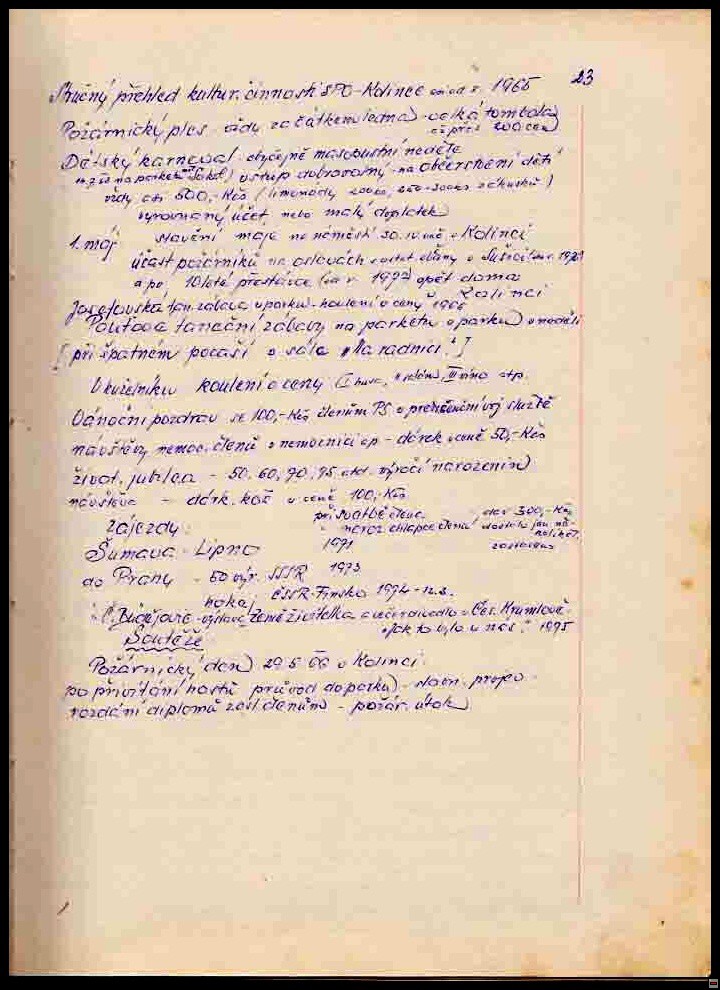 23
Stručný přehled kultur. činnosti SPO-Kolinec od r. 1965
Požárnický ples vždy začátkem ledna - velká tombola
cž přes 200 cen
Dětský karneval obyčejně masopustní neděle
na parketu Sokol vstup dobrovolný - na občerstvení dětí
vždy 500,- Kčs (limonády zákusků)
vyrovnaný účet nebo malý doplatek
1. máj stavění máje na náměstí 30. IV. v Kolinci
účast požárníků na oslavách v Sušici
a po 10leté přestávce r. 1972 opět doma
Kolinci
Josefovská tan. zábava v parku - koulení o ceny
Pouťová taneční zábavy na parketu v parku v neděli
[při špatném počasí v sále "Na radnici."]
V kuželníku koulení o ceny (I husa, II III víno atp.
Vánoční pozdrav se 100,- Kčs členům PS v presenční voj službě
návštěvy nemoc. členů v nemocnici ap - dárek v ceně 50,- Kčs
život. jubilea - 50, 60, 70, 75 atd. výročí narozenin
návštěva - dárk. koš v ceně 100,- Kčs
při svatbě člena dar 300,- Kčs
Zájezdy: naroz. chlapce člena
Šumava - Lipno 1971
do Prahy - 50 výr. SSSR 1973
hokej ČSSR-Finsko 1974
Č. Budějovice - výstava Země živitelka a večer divadlo v Čes. Krumlově
"Jak to bylo u nás." 1975
Soutěže
Požárnický den 29. 5. 66 v Kolinci.
po přivítání hostů průvod do parku - slavn. projev
rozdání diplomů zasl. členům - požár. útok